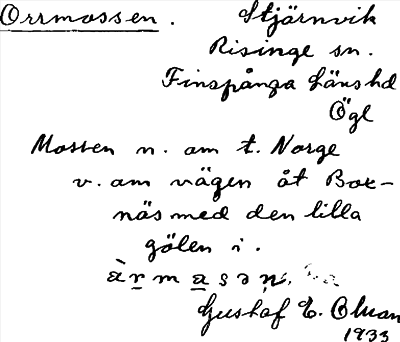 Orrmossen. Stjärnvik
Risinge sn.
Finspånga Läns hd
Ögl
Mossen n. om t. Norge
v. om vägen åt Box-
näs med den lilla
gölen i.
àrmasən.
Gustaf E. Oluan
1933